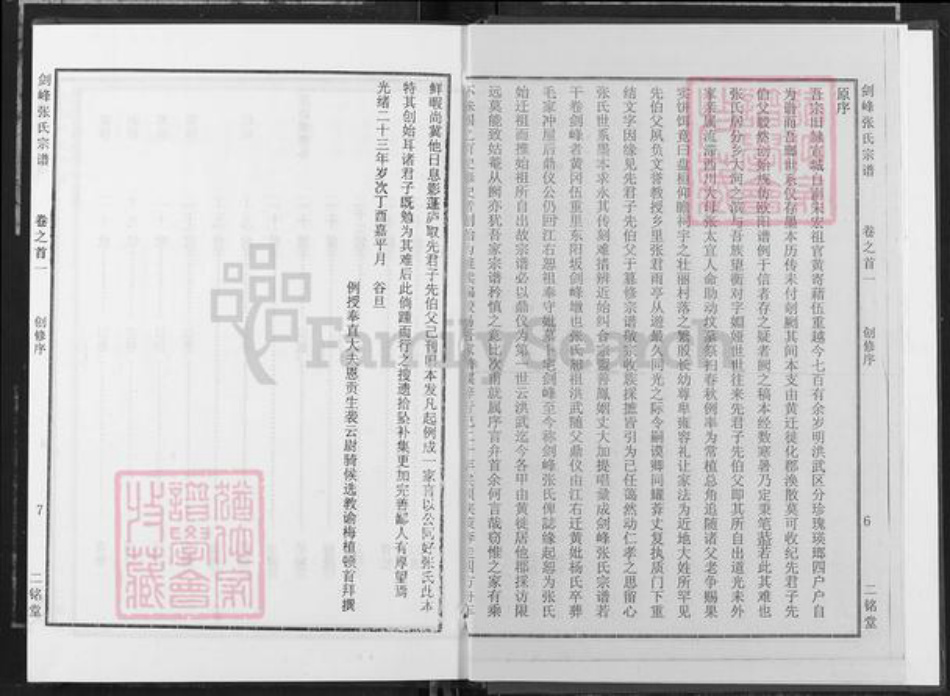 剑峰张氏宗谱
卷之首一
创修序
6
二铭堂
原序
吾宗旧隶宣城自嗣宋宏祖官黄寄藉伍重越今七百有余岁明洪武区分珍瑰瑛瑯四户户自
为谱而吾鄉世系仅存墨本历传未付剞劂其间本支由黄迁徙化郡涣散莫可收纪先君子先
伯父毅然创始规仿欧阳谱例于信者存之疑者阙之稿本经数寒暑乃定秉笔葢若此其难也
张氏居分乡大河之滨与吾族望衡对宇媚娅世世往来先君子先伯父即其所自出道光末外
家亲属流滞西川大母张太宜人命助动坟墓祭扫春秋例率为常植总角追随诸父老争赐果
实饼饵竟日盘桓仰瞻祠宇之壮丽村落之繁殷长幼尊卑雍容礼让家法为近地大姓所罕见
先伯父夙负文誉教授乡里张君雨亭从游最久同光之际令嗣谟卿同罐莽丈复执质门下重
结文字因缘见先君子先伯父于墓修宗谱敬宗收族採摭皆引为己任蔼然动仁孝之思留心
张氏世系墨本求永其传刻难措辨近始纠合宗盟善鳳姻丈大加提唱彙成剑峰张氏宗谱若
干卷剑峰者黄冈伍重里东阳坂剑峰墩也张氏恕祖洪武随父鼎仪由江右迁黄妣杨氏卒葬
毛家冲屋后鼎仪公仍回江右恕祖奉守妣墓卜宅剑峰至今称剑峰张氏俾誌缘起恕为张氏
始迁祖而推始祖所自出故宗谱必以鼎仪为第一世云洪武迄今各甲由黄徙居他郡採访限
远莫能致姑菴从阙亦犹吾家宗谱矜慎之意比次甫就属序言弁首余何言哉窃惟之家有乘
鲜暇尚冀他日息影蓬庐取先君子先伯父已刊原本发凡起例成一家言以公同好张氏此本
特其创始耳诸君子既勉为其难后此倘踵而行之搜遗拾坠补集更加完善鄙人有厚望焉
光绪二十三年岁次丁酉嘉平月 谷旦
例授奉直大夫恩贡生袭云尉骑候选教谕梅植顿首拜撰
剑峰张氏宗谱
卷之首一
创修序
7
二铭堂
FamilySearch